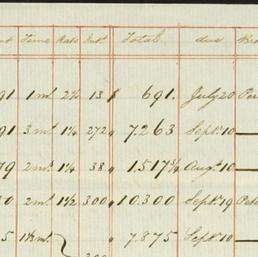 Time Rate Int. Total due
91 1 mt 2½ 13 $ 691. July 20 Per
91 3 mt 1¼ 272 " 7.263 Sept. 10
79 2 mt 1¼ 38 " 1.517¾ Augt. 10
30 2 mt 1½ 300 " 10.300 Sept. 19
5 " 7.875 Sept. 10